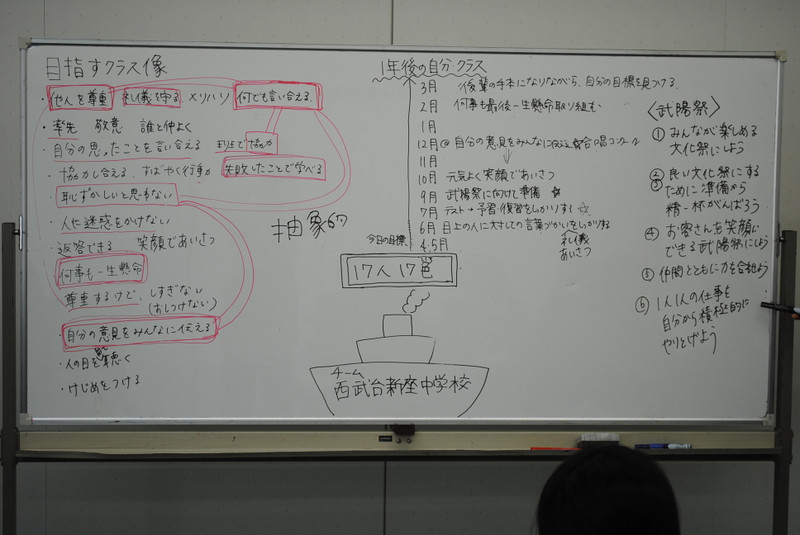 目指すクラス像
・他人を尊重 礼儀を守る メリハリ 何でも言い合える
・率先 敬意 誰と仲よく
・自分の思ったことを言い合える 対立で協力
・協力し合える すばやく行動 失敗したことで学べる
恥ずかしいと思わない
・人に迷惑をかけない
・返答できる 笑顔であいさつ
何事も一生懸命
尊重するけど、しすぎない
(おしつけない)
・自分の意見をみんなに伝える
・人の目を見て聴く
・けじめをつける
抽象的
1年後の自分・クラス
3月 後輩の手本になりながら、自分の目標を見つける
2月 何事も最後一生懸命取り組む
1月
12月 自分の意見をみんなに伝える 合唱コンクール
11月
10月 元気よく笑顔であいさつ
9月 武陽祭に向けて準備 ☆
7月 テスト→予習・復習をしっかりする ☆
6月 目上の人に対しての言葉づかいをしっかりする
礼儀
あいさつ
今日の目標
4.5月
17人17色
チーム
西武台新座中学校
〈武陽祭〉
① みんなが楽しめる
文化祭にしよう
② 良い文化祭にする
③ ために準備から
精一杯がんばろう
④ お客さんを笑顔に
できる武陽祭にしよう
⑤ 仲間とともに力を合わせよう
⑥ 1人1人の仕事を
自分から積極的に
やりとげよう